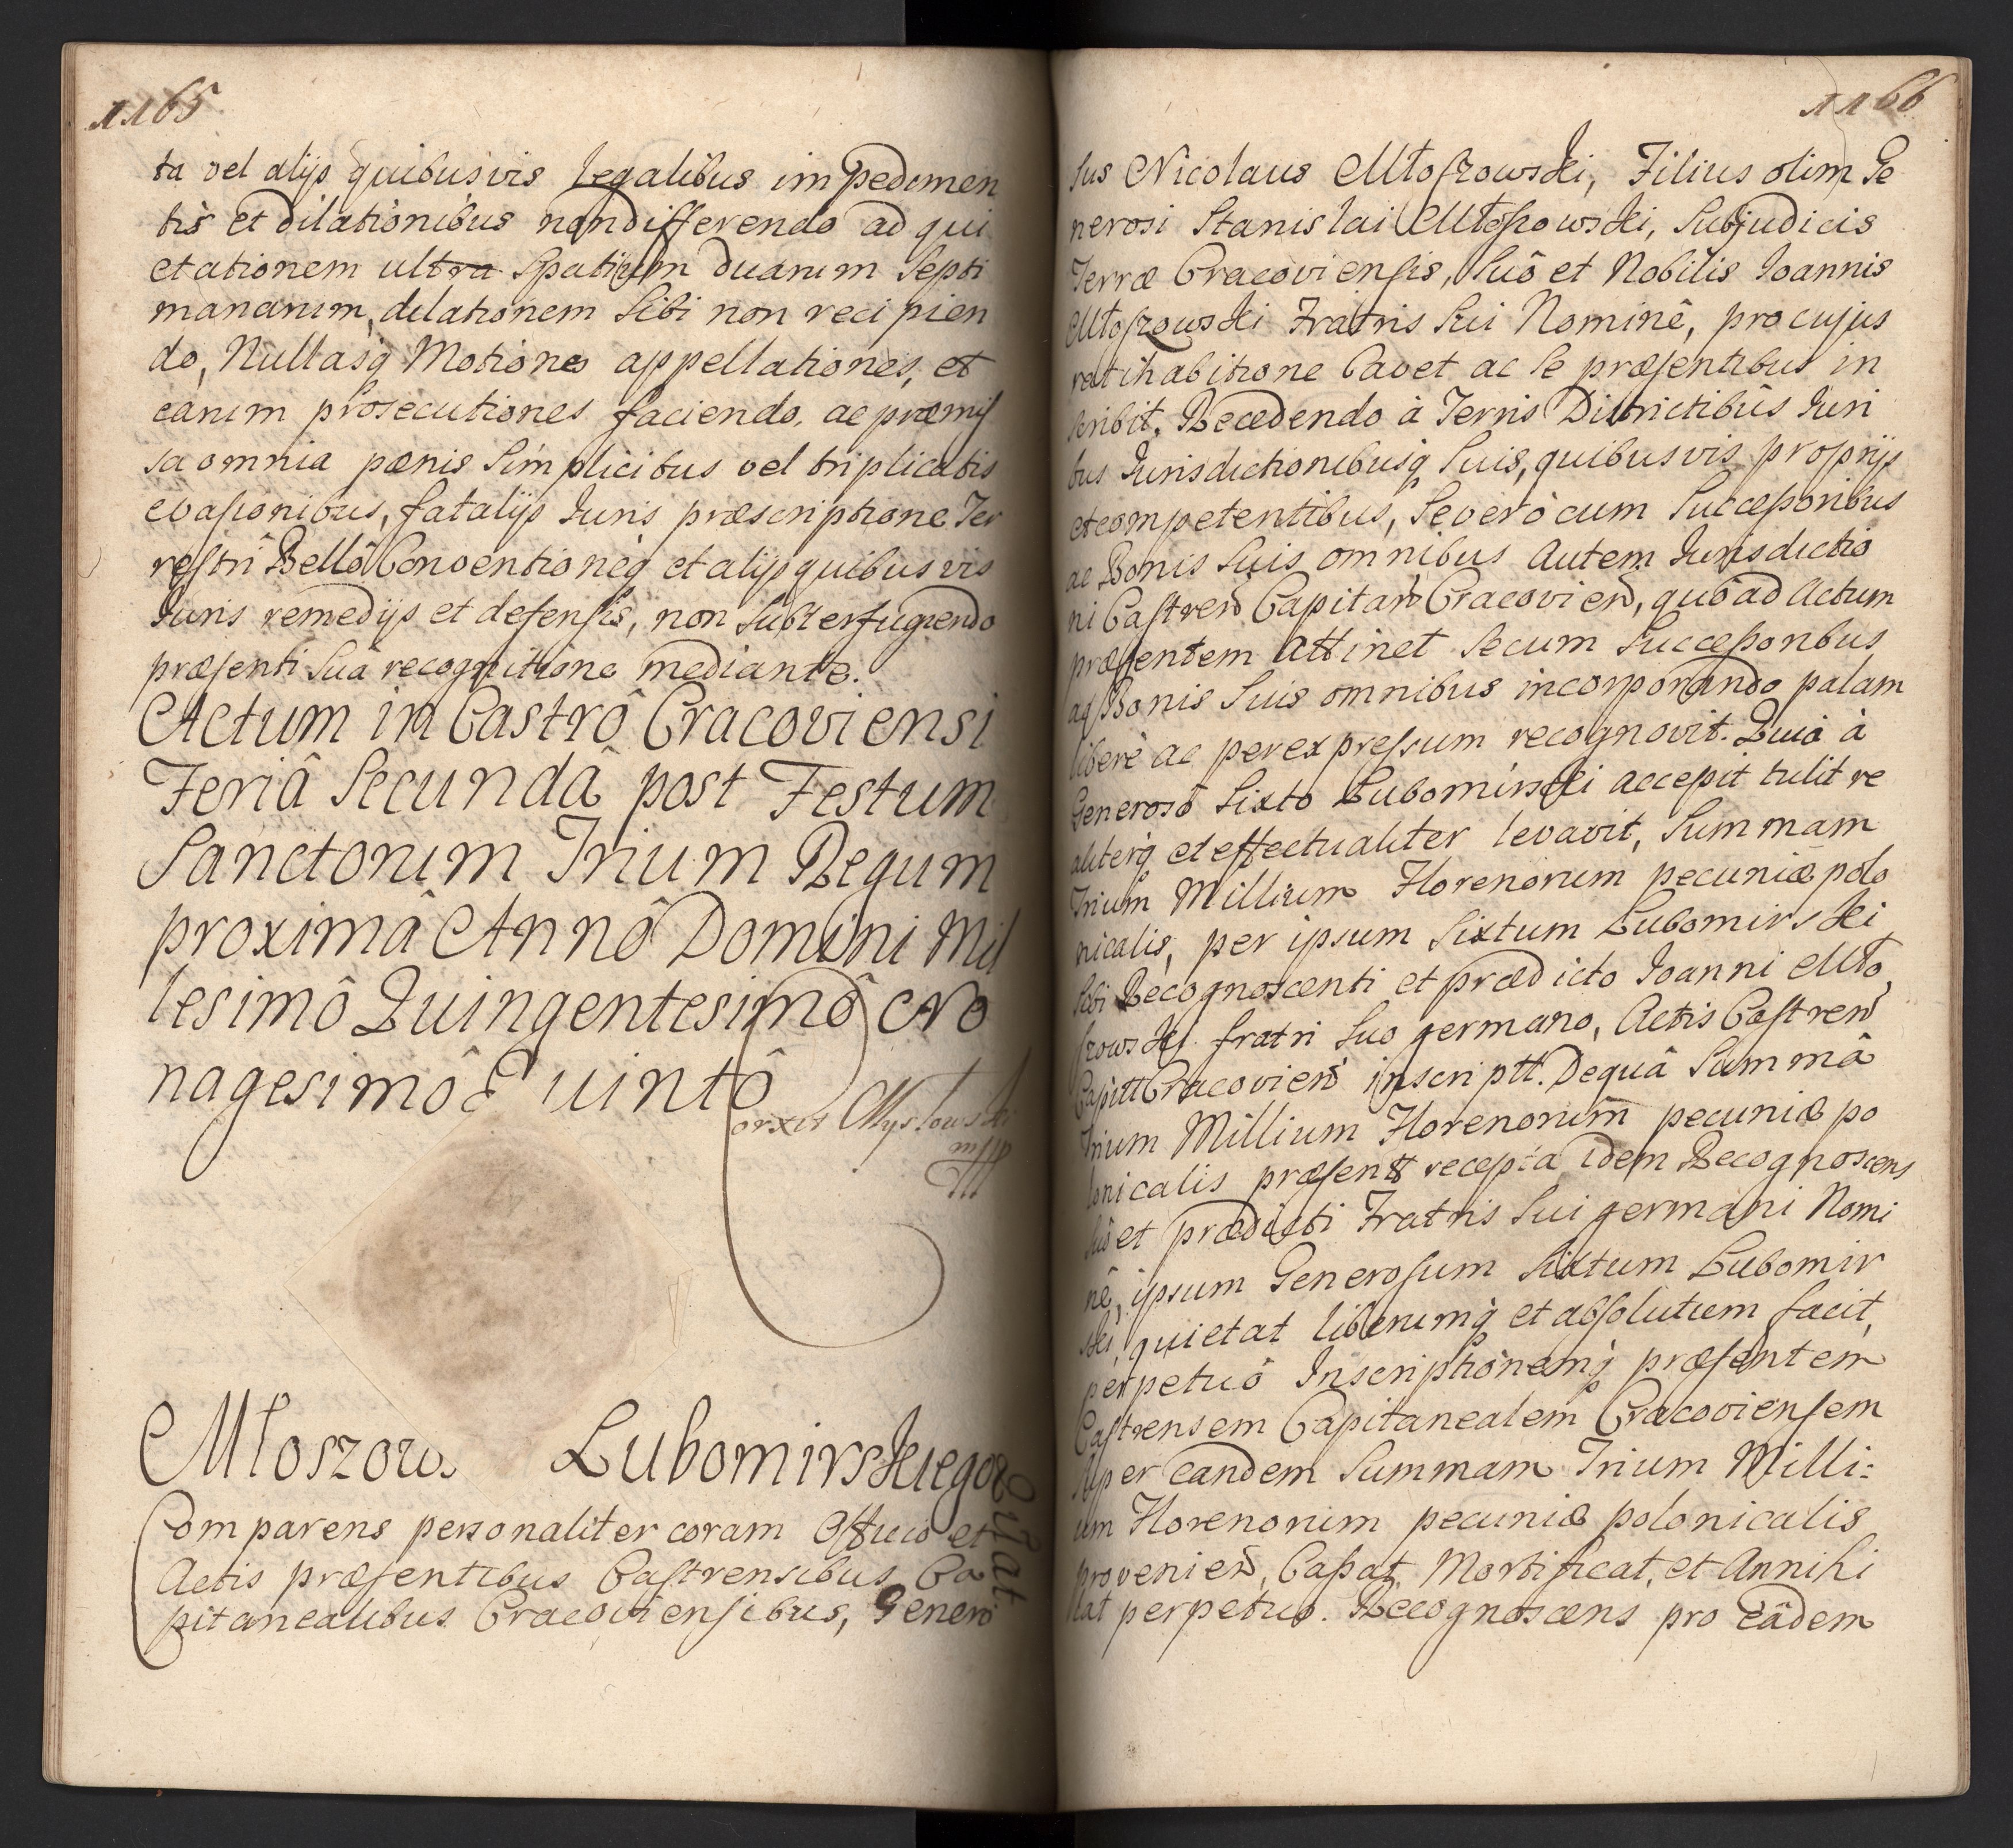 1165
ta vel alijs quibusvis Legalibus impedimen
tis et dilationibus non differendo ad qui
etationem ultra Spatium duarum Septi
manarum, dilationem Sibi non recipien
do, Nullasq Motiones appellationes, et
earum prosecutiones faciendo. ac præmis
sa omnia pænis Simplicibus vel triplicatis
evasionibus, fatalijs Juris præscriptione Ter
restri Bellô Conventioneq̀ et alijs quibusvis
Juris remedijs et defensis, non Subterfugiendo
præsenti Suâ recognitione mediante.
Actum in Castrô Cracoviensi
Feriâ Secundâ post Festum
Sanctorum Trium Regum
proximâ Annô Domini Mil
lesimô Quingentesimô No
nagesimô Quintô
Młoszow. Lubomirskiego
Quiat
Comparens personaliter coram Officio et
Actis præsentibus Castrensibus Ca
pitanealibus Cracoviensibus, Genero
1166
sus Nicolaus Młoszowski, Filius olim Ge
nerosi Stanislai Młoszowski, Subjudicis
Terræ Cracoviensis, Suô et Nobilis Joannis
Młoszowski Fratris Sui Nominê, pro cujus
ratihabitione Cavet ac Se præsentibus in
scribit. Recedendo à Terris Districtibûs Juri
bus Jurisdictionibusq Suis, quibusvis proprijs
et competentibus, Se verò cum Successoribus
ac Bonis Suis omnibus Autem Jurisdictio
ni Castren Capitan Cracovien, quô ad Actum
præsentem attinet Secum Successoribus
aq Bonis Suis omnibus incorporando palam
liberè ac per expressum recognovit. Quia à
Generosô Sixto Lubomirski accepit tulit re
aliterq et effectualiter levavit, Summam
Trium Millium Florenorum pecuniæ polo
nicalis, per ipsum Sixtum Lubomirski
Sibi Recognoscenti et prædicto Joanni Mło
szowski fratri Suo germano, Actis Castren
Capittl Cracovien inscriptt. De quâ Summâ
Trium Millium Florenorum pecuniæ po
lonicalis præsentt recepta idem Recognoscens
Suô et prædicti Fratris Sui germani Nomi
nê, ipsum Generosum Sixtum Lubomir
ski, quietat liberumq̀ et absolutum facit,
perpetuô Inscriptionemq̀ præsentem
Castrensem Capitanealem Cracoviensem
Super eandem Summam Trium Milli:
um Florenorum pecuniæ polonicalis
provenien, Cassat Mortificat, et Annihi
lat perpetuo. Recognoscens pro eâdem